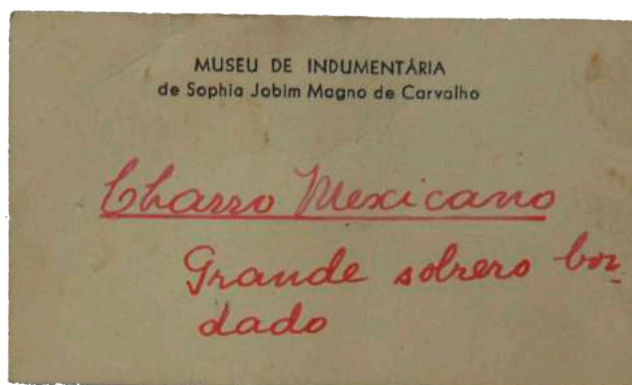 MUSEU DE INDUMENTÁRIA
de Sophia Jobim Magno de Carvalho
Charro Mexicano
Grande sobrero bor-
dado